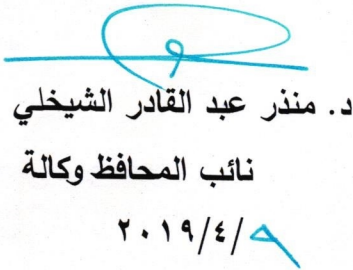 د. منذر عبد القادر الشيخلي
نائب المحافظ وكالة
٢٠١٩/٤/٩